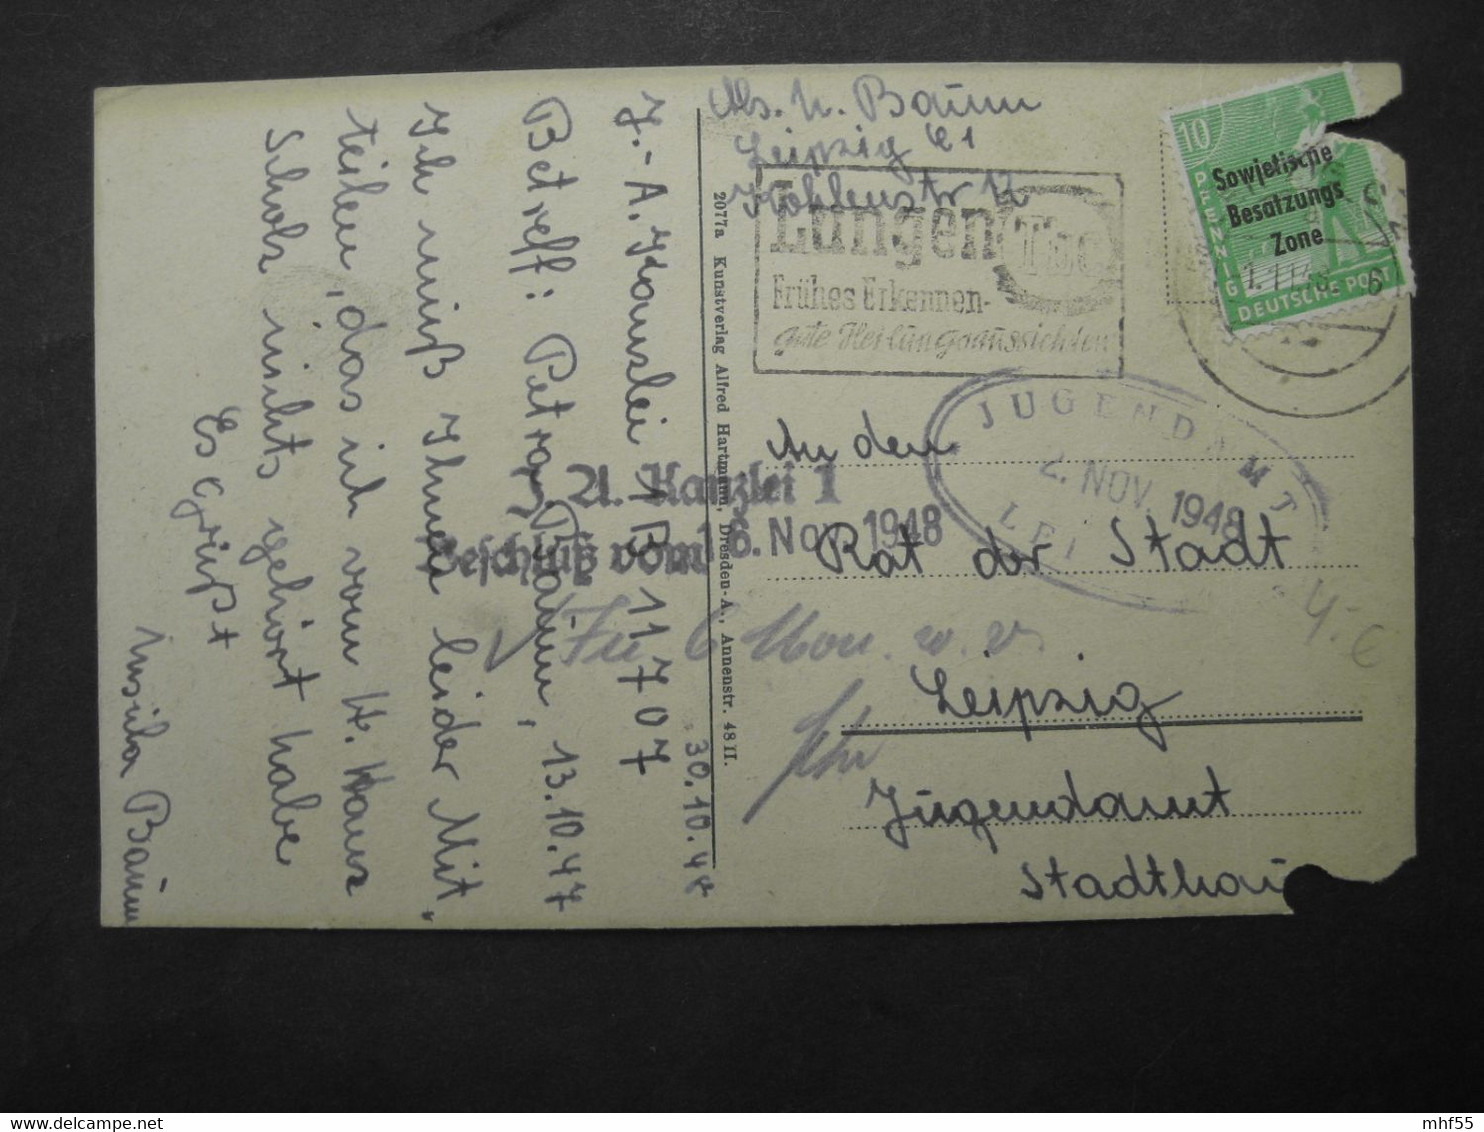 Abs. U. Baum
Leipzig C1
Kohlenstr 12
Lungen Tbc
Frühes Erkennen-
gute Heilungsaussichten
10
PFENNIG
DEUTSCHE POST
Sowjetische
Besatzungs
Zone
JUGENDAMT
2. NOV. 1948
LEI
An den
Rat der Stadt
Leipzig
Jugendamt
Stadthau
4.-€
J. A. Kanzlei 1
Beschluß vom 6. Nov. 1948
2077a Kunstverlag Alfred Hartmann, Dresden-A., Annenstr. 48 II.
30.10.48
J.-A. Kanzlei 1B 11707
Betreff: Petra Baum, 13.10.47
Ich muß Ihnen leider Mit,
teilen, das ich vom H. Hans
Scholz nichts gehört habe
Es grüßt
Ursula Baum
mhf55
www.delcampe.net